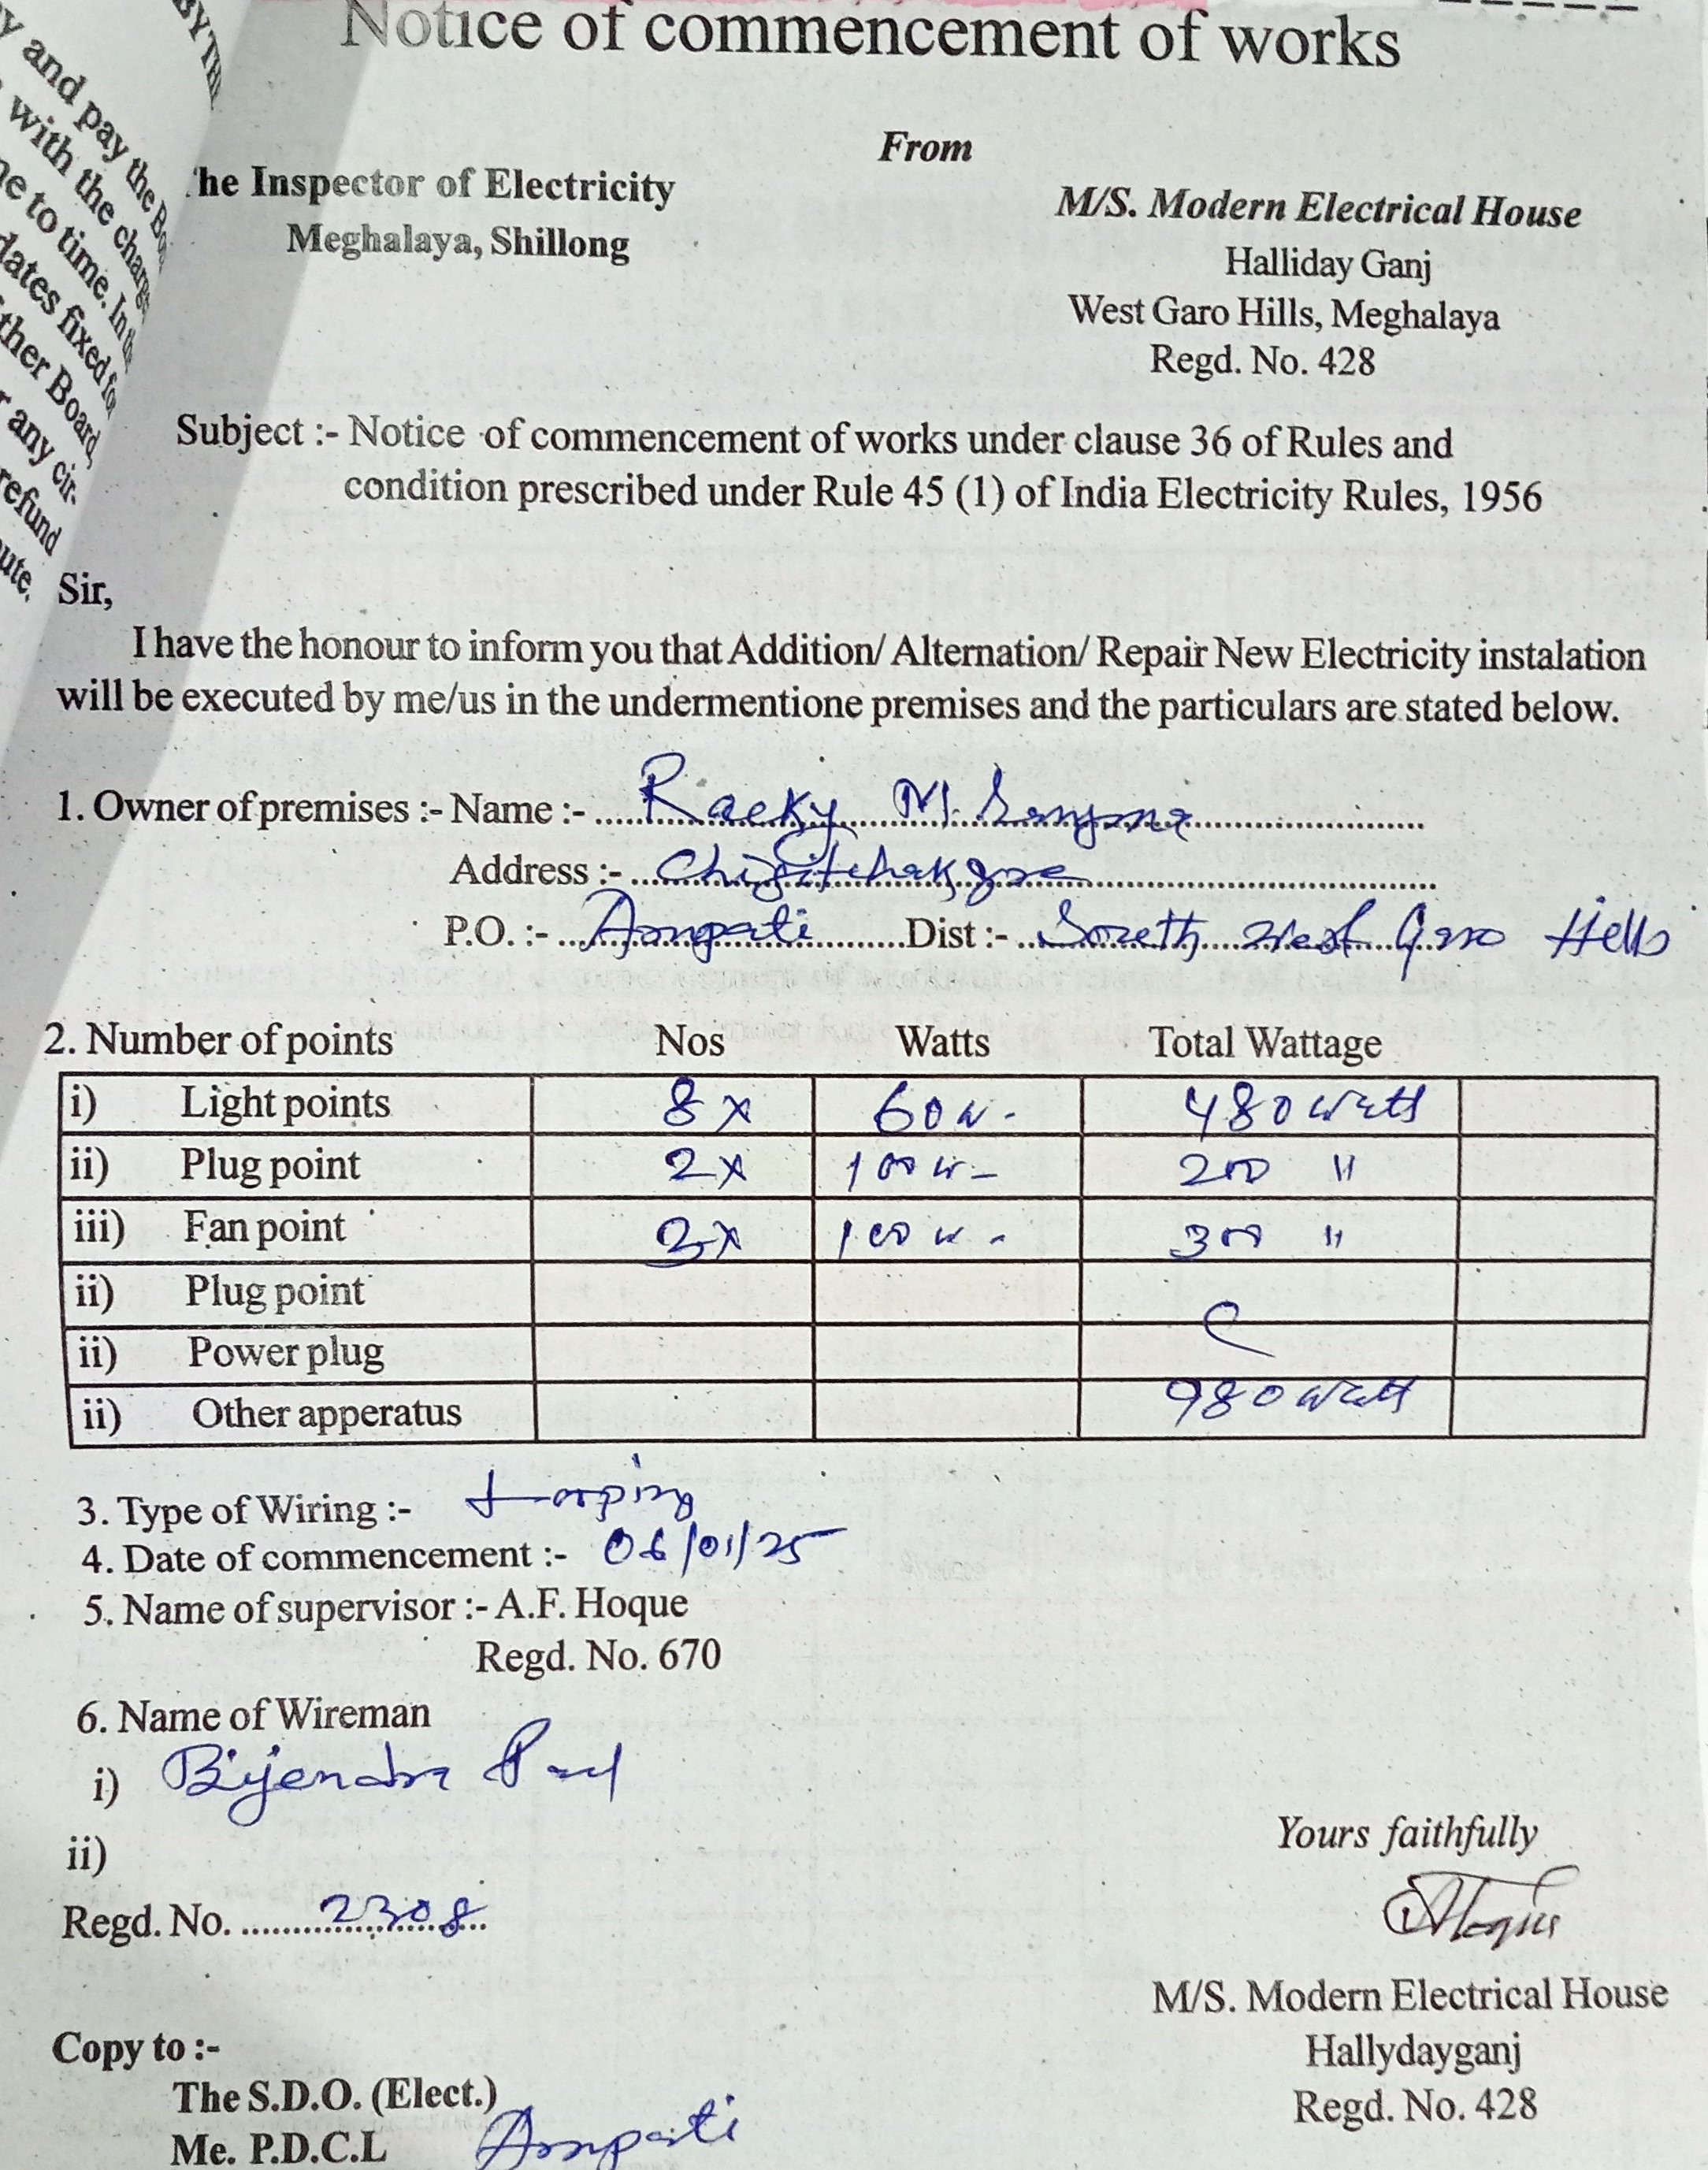 Notice of commencement of works
From
he Inspector of Electricity
Meghalaya, Shillong
M/S. Modern Electrical House
Halliday Ganj
West Garo Hills, Meghalaya
Regd. No. 428
y and pay the
with the
to time. In
dates fixed
ther Board,
any cir-
refund
ute.
Subject :- Notice of commencement of works under clause 36 of Rules and
condition prescribed under Rule 45 (1) of India Electricity Rules, 1956
Sir,
I have the honour to inform you that Addition/ Alternation/ Repair New Electricity instalation
will be executed by me/us in the undermentione premises and the particulars are stated below.
1. Owner of premises :- Name :- Racky M. Sangma
Address :-
P.O. :- Ampati Dist :- South West Garo Hills
2. Number of points Nos Watts Total Wattage
i) Light points 8 x 60 w- 480 watts
ii) Plug point 2 x 100 w- 200 "
iii) Fan point 3 x 100 w- 300 "
ii) Plug point
ii) Power plug
ii) Other apperatus 980 watts
3. Type of Wiring :- Looping
4. Date of commencement :- 06/01/25
5. Name of supervisor :- A.F. Hoque
Regd. No. 670
6. Name of Wireman
i) Bijendra Paul
ii)
Regd. No. 2308
Yours faithfully
M/S. Modern Electrical House
Hallydayganj
Regd. No. 428
Copy to :-
The S.D.O. (Elect.)
Me. P.D.C.L Ampati